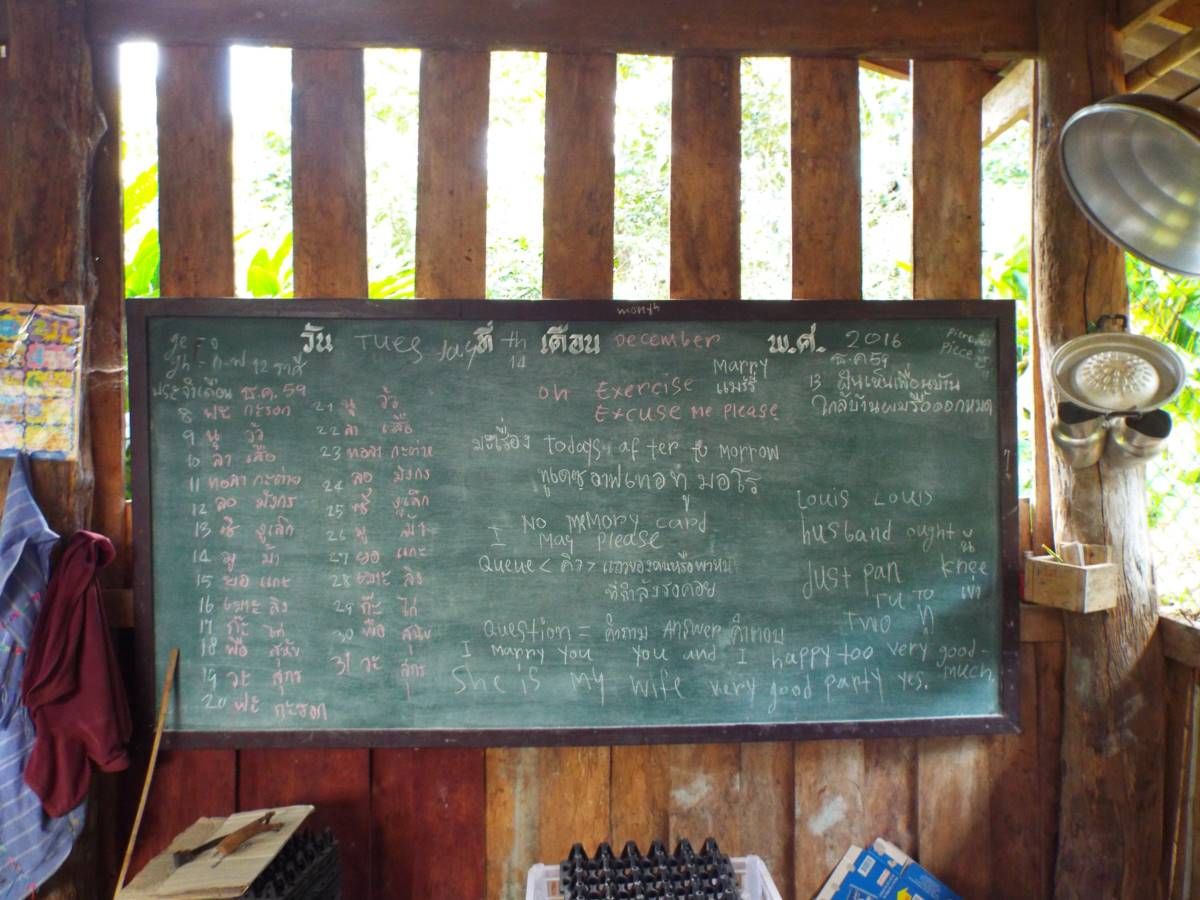 month
วัน Tuesday ที่ 14 th เดือน December พ.ศ. 2016
ธ.ค 59
12 ราศี
ประจำเดือน ธ.ค. 59
8 ฟะ กะรอก
9 นุ วัว
10 ลา เสือ
11 ทอลา กะต่าย
12 ลอ มังกร
13 ซี งูเล็ก
14 มู ม้า
15 ยอ แกะ
16 เยาะ ลิง
17 ก๊ะ ไก่
18 พือ สุนัข
19 วะ สุกร
20 ฟะ กะรอก
21 นู วัว
22 ลา เสือ
23 ทอลา กะต่าย
24 ลอ มังกร
25 ซี งูเล็ก
26 มู ม้า
27 ยอ แกะ
28 เยาะ ลิง
29 ก๊ะ ไก่
30 พือ สุนัข
31 วะ สุกร
Marry
oh Exercise แมร์รี่
Excuse me please
13 ฝันเห็นเพื่อนบ้าน
ใกล้บ้านผมรื้อออกหมด
มะเรื่อง todays after to morrow
ทูเดซฺ อาฟเทอ ทู มอโร
No memory card
I may please
Queue < คิว > แถวของคนหรือพาหนะ
ที่กำลังรอคอย
Question = คำถาม Answer คำตอบ
I marry you you and I happy too very good
much
She is my wife very good party yes.
Louis Louis
husband ought
Just pan knee เข่า
Two ทู